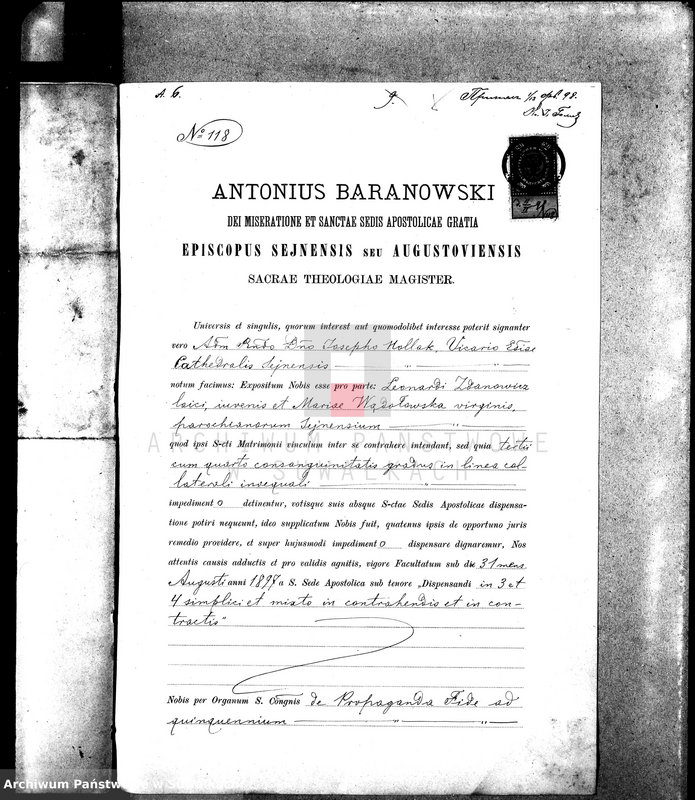 A. G.
Nº 118
ANTONIUS BARANOWSKI
DEI MISERATIONE ET SANCTAE SEDIS APOSTOLICAE GRATIA
EPISCOPUS SEJNENSIS SEU AUGUSTOVIENSIS
SACRAE THEOLOGIAE MAGISTER.
Universis et singulis, quorum interest aut quomodolibet interesse poterit signanter
vero Adm Rndo Dno Josepho Hollak, Vicario Ecciae
Cathedralis Sejnensis
notum facimus: Expositum Nobis esse pro parte: Leonardi Zdanowicz
laici, iuvenis et Mariae Wądołowska virginis,
parochianorum Sejnensium
quod ipsi S-cti Matrimonii vinculum inter se contrahere intendant, sed quia tertii
cum quarto consanguinitatis gradus in linea col-
laterali inaequali
impediment o detinentur, votisque suis absque S-ctae Sedis Apostolicae dispensa-
tione potiri nequeunt, ideo supplicatum Nobis fuit, quatenus ipsis de opportuno juris
remedio providere, et super hujusmodi impediment o dispensare dignaremur. Nos
attentis causis adductis et pro validis agnitis, vigore Facultatum sub die 31 mens.
Augusti anni 1897 a S. Sede Apostolica sub tenore „Dispensandi in 3 et
4 simplici et mixto in contrahendis et in con-
tractis"
Nobis per Organum S. Congnis de Propaganda Fide ad
quinquennium
ARCHIWUM PAŃSTWOWE
W SUWAŁKACH
Archiwum Państw